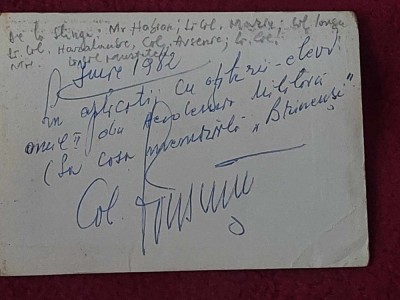 De la stînga: Mr Hașion; Lt. Col. Marin; Col.
Lt. Col. Haralambie, Col. Arsenie; Lt. Col.
Mr.
Iunie 1982
În aplicații cu ofițerii-elevi
anul II din Academia Militară
(La casa memorială „Brâncuși"
Col.